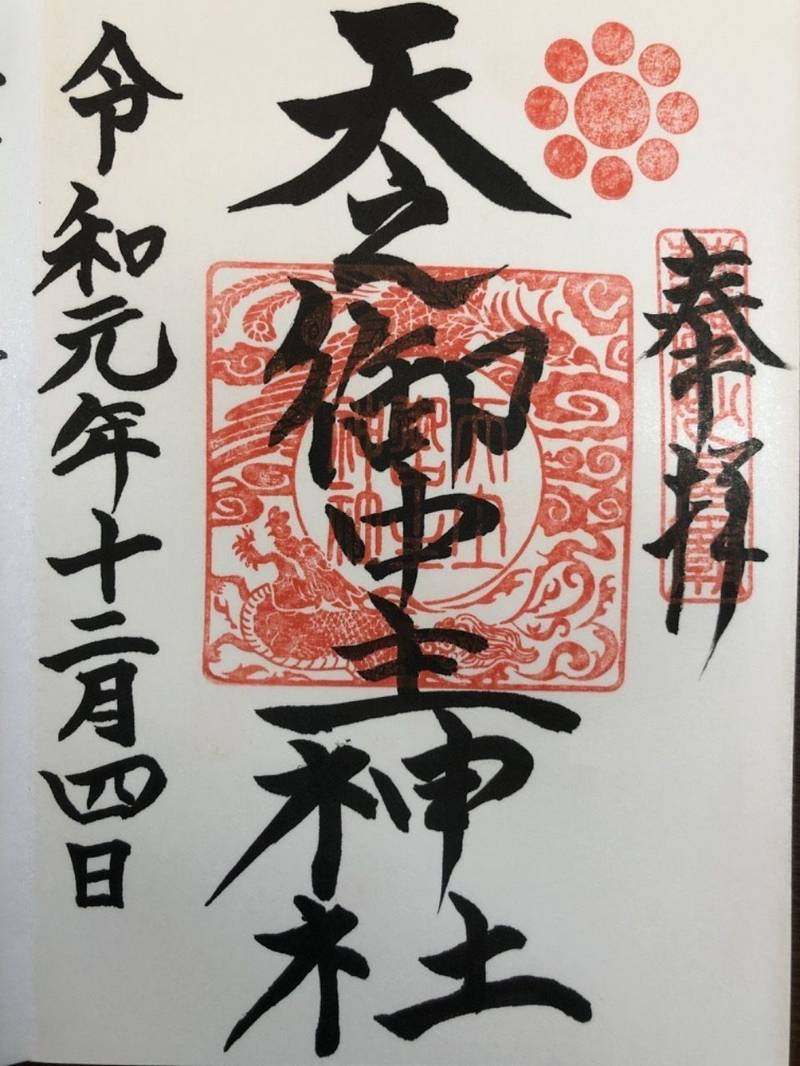 奉拝
天之御中主神社
令和元年十二月四日